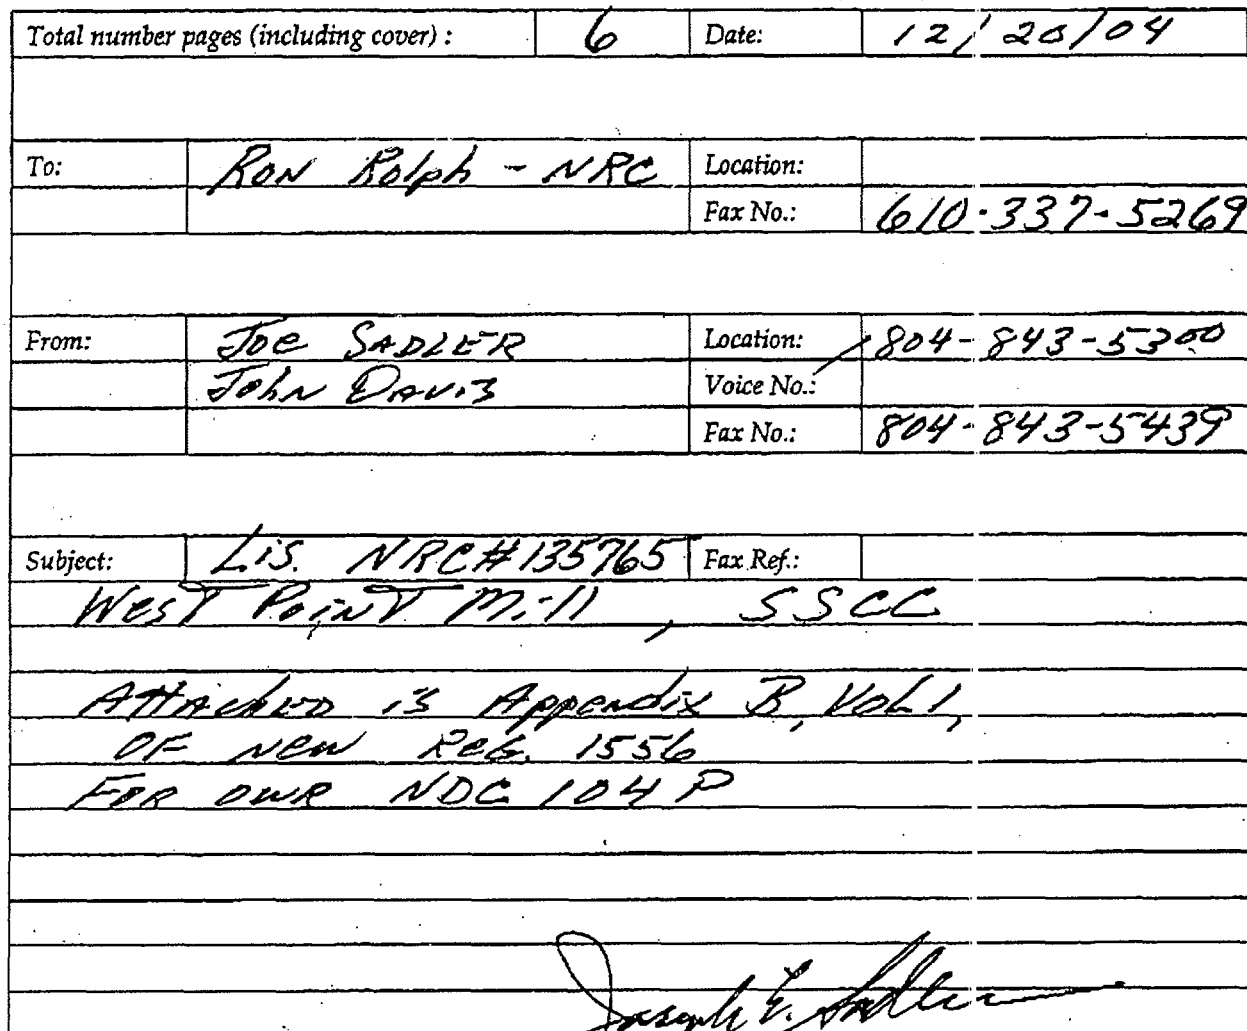 Total number pages (including cover) : 6 Date: 12/20/04
To: Ron Rolph - NRC Location:
Fax No.: 610-337-5269
From: Joe SADLER Location: 804-843-5300
John Davis Voice No.:
Fax No.: 804-843-5439
Subject: Lis. NRC#135765 Fax Ref.:
West Point Mill, SSCC
Attached is Appendix B, Vol 1,
OF New Reg. 1556
FOR OWR NDC 104 P
Joseph E. Sadler